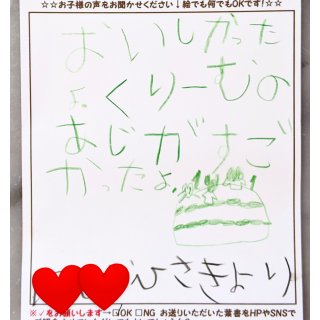 ☆☆お子様の声をお聞かせください↓絵でも何でもOKです!☆☆
おいしかった
よ。くりーむの
あじがすご
かったよ。
ひさきより
※✓をお願いします→□OK □NG お送りいただいた葉書をHPやSNSで